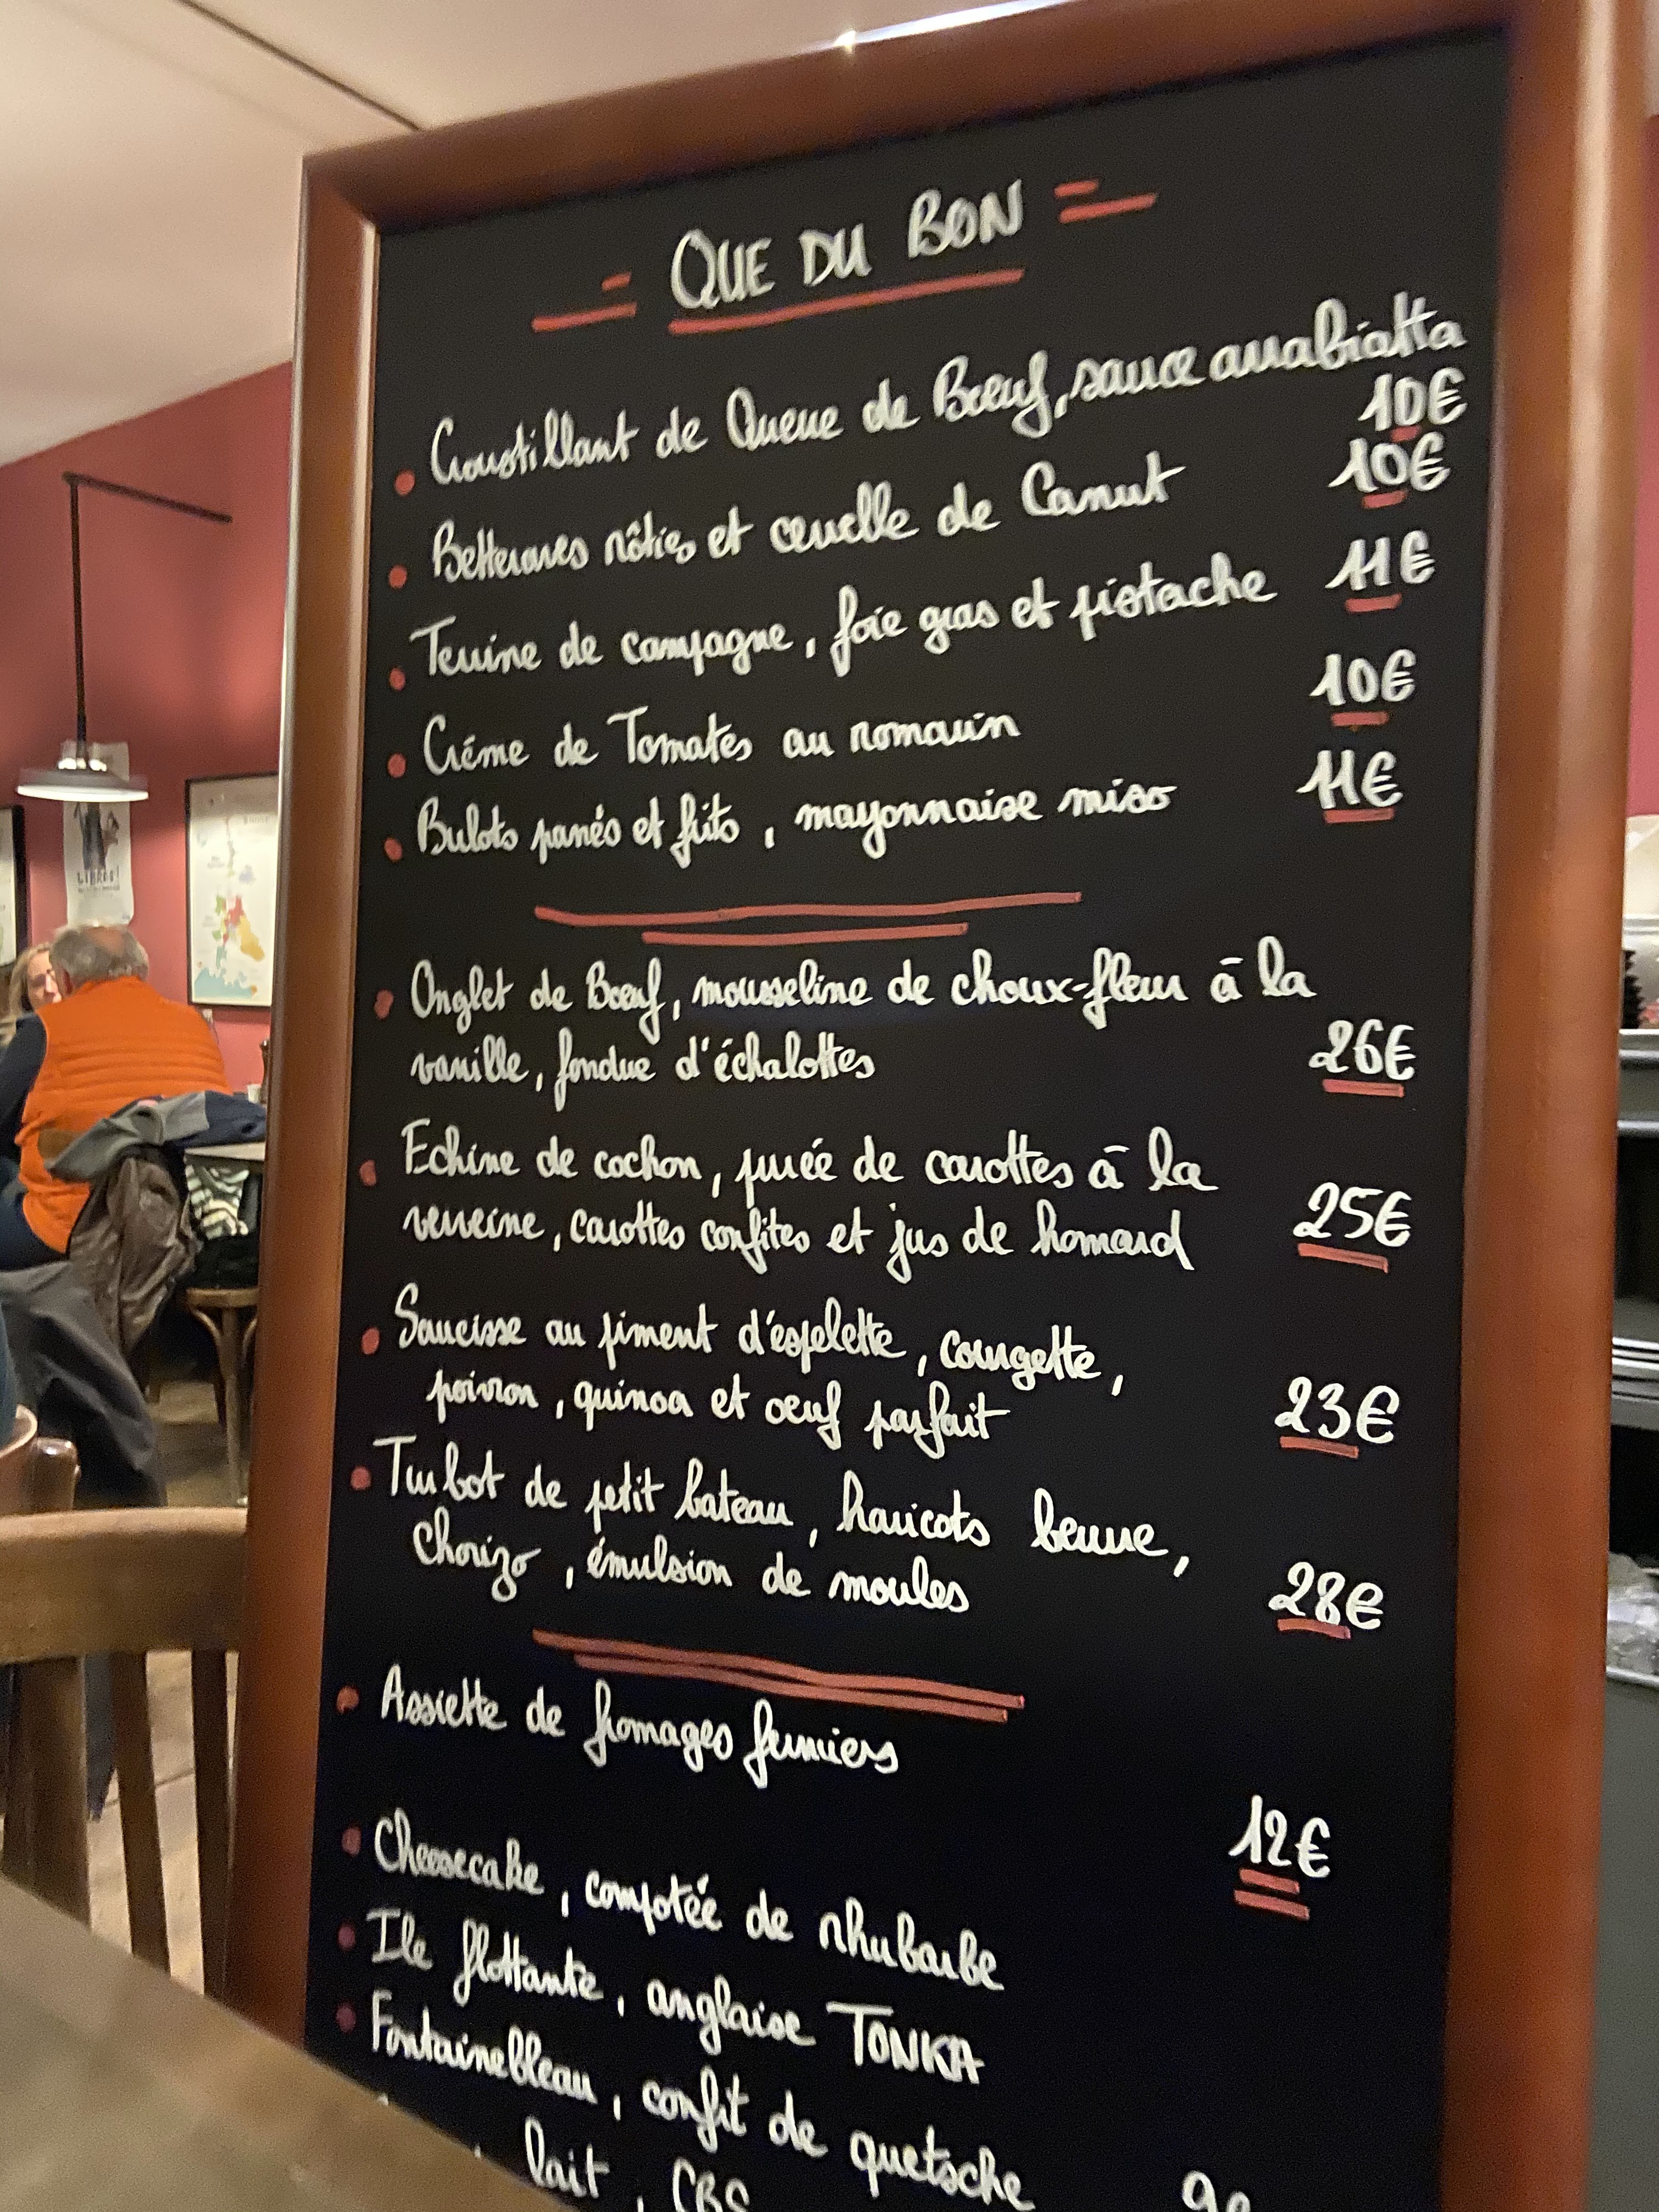 QUE DU BON
Croustillant de Queue de Bœuf, sauce arrabiatta
10€
Betteraves rôties et cervelle de Canut 10€
Terrine de campagne, foie gras et pistache 11€
Créme de Tomates au romarin 10€
Bulots panés et frits, mayonnaise miso 11€
Onglet de Bœuf, mousseline de choux-fleur à la
vanille, fondue d'échalottes 26€
Echine de cochon, purée de carottes à la
verveine, carottes confites et jus de homard 25€
Saucisse au piment d'espelette, courgette,
poivron, quinoa et oeuf parfait 23€
Turbot de petit bateau, haricots beurre,
chorizo, émulsion de moules 28€
Assiette de fromages fermiers
12€
Cheesecake, compotée de rhubarbe
Ile flottante, anglaise TONKA
Fontainebleau, confit de quetsche
lait, CBS
LIBRES!